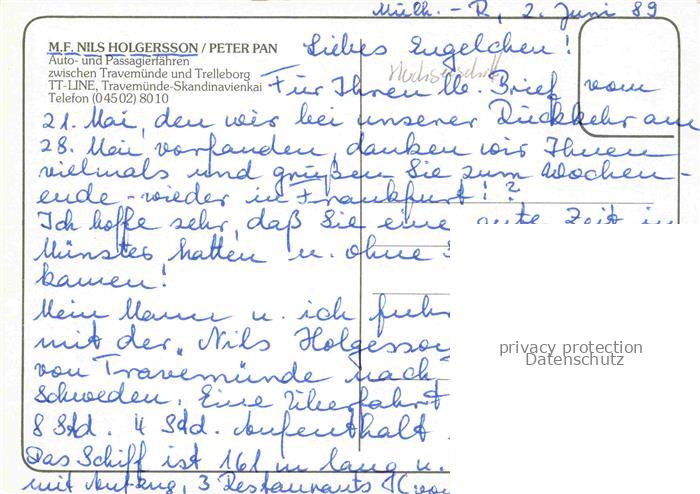 Mülh. - R, 2. Juni 89
M.F. NILS HOLGERSSON / PETER PAN
Auto- und Passagierfähren
zwischen Travemünde und Trelleborg
TT-LINE, Travemünde-Skandinavienkai
Telefon (04502) 8010
Liebes Engelchen!
Für Ihren lb. Brief vom
21. Mai, den wir bei unserer Rückkehr am
28. Mai vorfanden, danken wir Ihnen
vielmals und grüßen Sie zum Wochen-
ende - wieder in Frankfurt! ?
Ich hoffe sehr, daß Sie eine gute Zeit in
Münster hatten u. ohne
kamen!
Mein Mann u. ich fuhr
mit der "Nils Holgersson
von Travemünde nach
Schweden. Eine Überfahrt
8 Std. 4 Std. Aufenthalt
Das Schiff ist 161 m lang u.
mit Aufzug, 3 Restaurants
privacy protection
Datenschutz